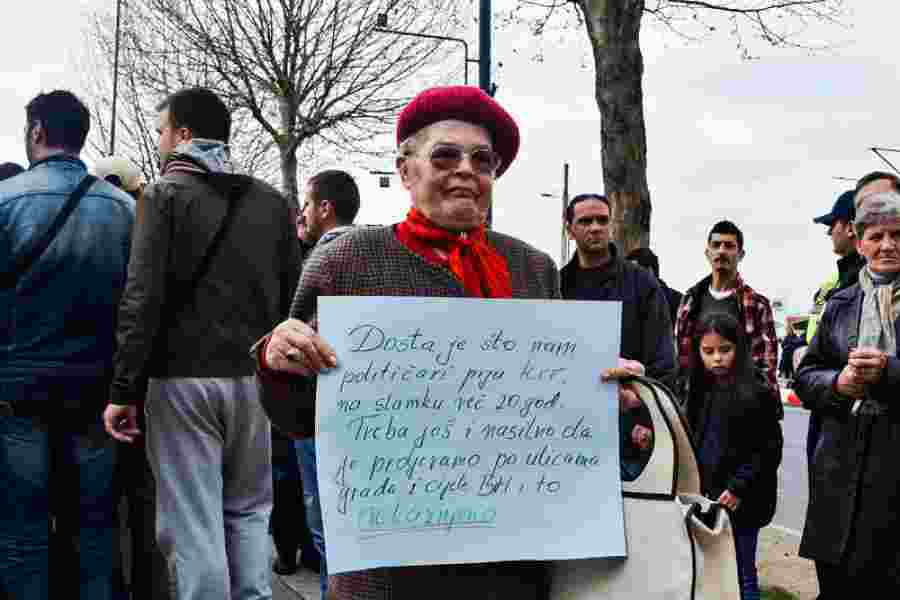 Dosta je što nam
političari piju krv,
na slamku več 20 god.
Treba još i nasilno da
je prolјevamo po ulicama
grada i cijele BH i to